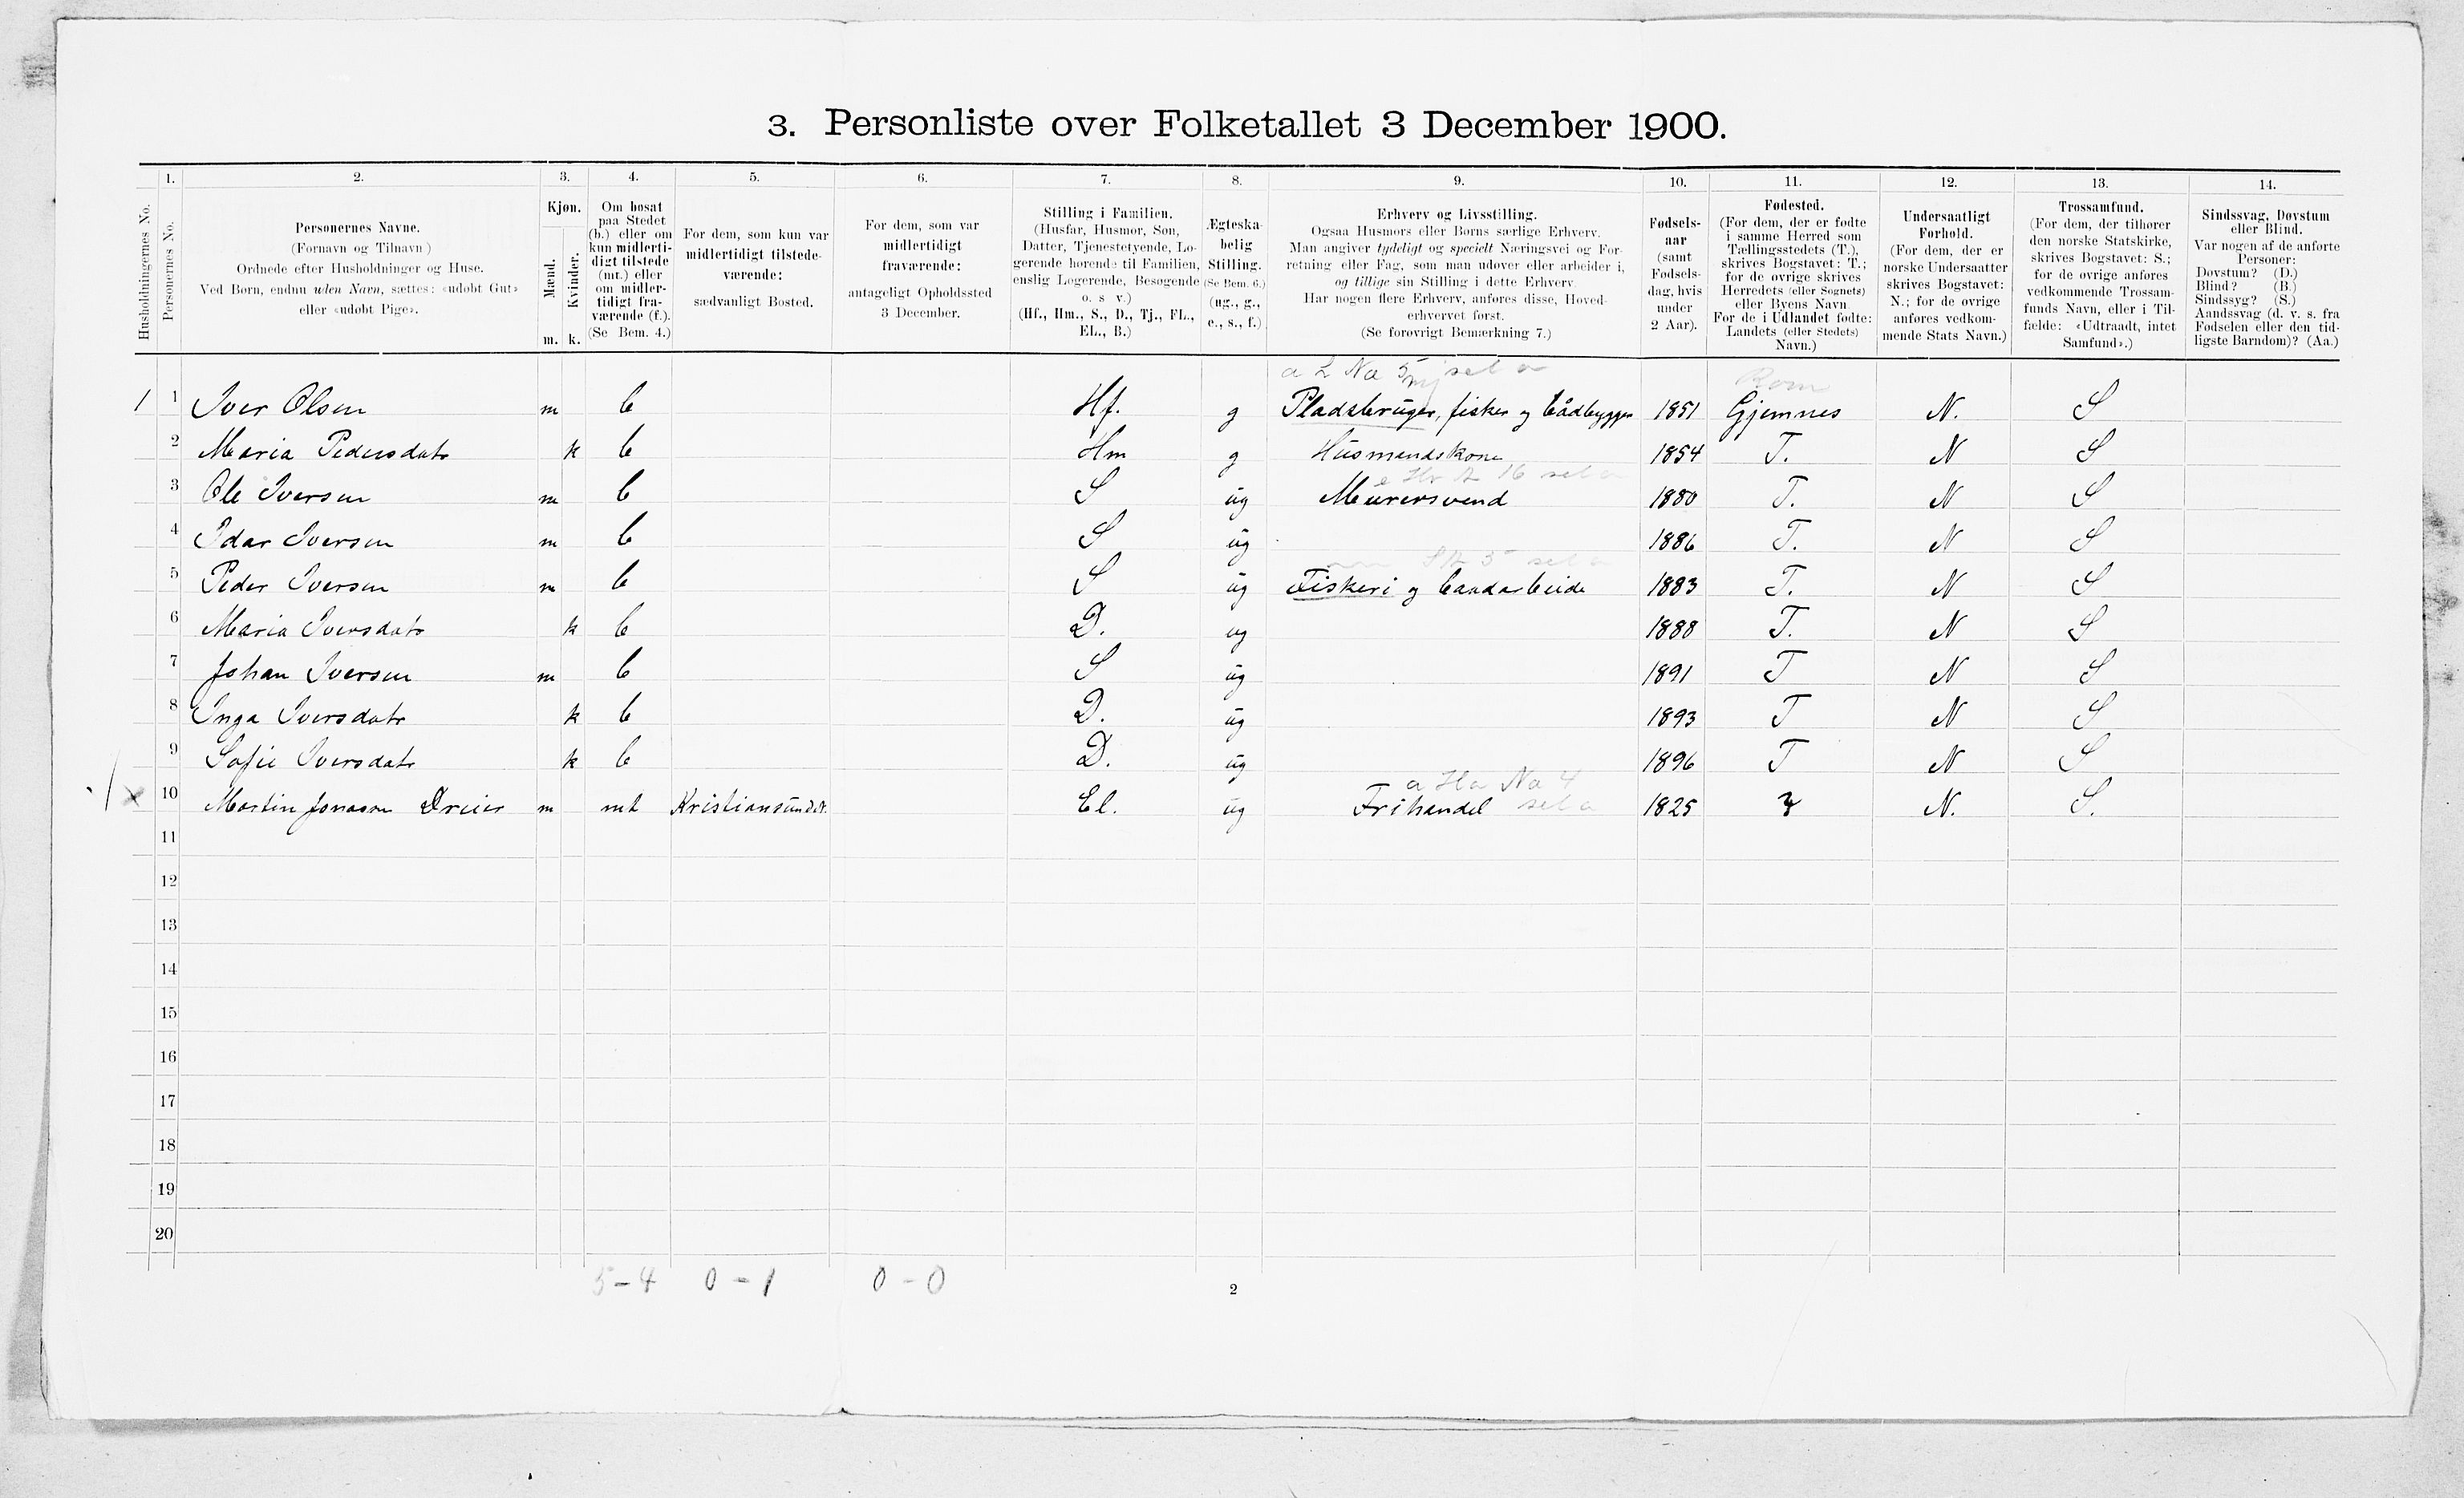 3. Personliste over Folketallet 3 December 1900.
Husholdningernes No.
1. Personernes No.
2. Personernes Navne.
(Fornavn og Tilnavn)
Ordnede efter Husholdninger og Huse.
Ved Børn, endnu uden Navn, sættes: «udøbt Gut»
eller «udøbt Pige».
3. Kjøn.
Mænd. Kvinder.
m. k.
4. Om bosat
paa Stedet
(b.) eller om
kun midlerti-
digt tilstede
(mt.) eller
om midler-
tidigt fra-
værende (f.).
(Se Bem. 4.)
5. For dem, som kun var
midlertidigt tilstede-
værende:
sædvanligt Bosted.
6. For dem, som var
midlertidigt
fraværende:
antageligt Opholdssted
3 December.
7. Stilling i Familien.
(Husfar, Husmor, Søn,
Datter, Tjenestetyende, Lo-
gerende hørende til Familien,
enslig Logerende, Besøgende
o. s v.)
(Hf., Hm., S., D., Tj., FL.,
EL., B.)
8. Ægteska-
belig
Stilling.
(Se Bem. 6.)
(ug., g.,
e., s., f.)
9. Erhverv og Livsstilling.
Ogsaa Husmors eller Børns særlige Erhverv.
Man angiver tydeligt og specielt Næringsvei og For-
retning eller Fag, som man udøver eller arbeider i,
og tillige sin Stilling i dette Erhverv.
Har nogen flere Erhverv, anføres disse, Hoved-
erhvervet først.
(Se forøvrigt Bemærkning 7.)
10. Fødsels-
aar
(samt
Fødsels-
dag, hvis
under
2 Aar).
11. Fødested.
(For dem, der er fødte
i samme Herred som
Tællingsstedets (T.),
skrives Bogstavet: T.;
for de øvrige skrives
Herredets (eller Sognets)
eller Byens Navn.
For de i Udlandet fødte:
Landets (eller Stedets)
Navn.)
12. Undersaatligt
Forhold.
(For dem, der er
norske Undersaatter
skrives Bogstavet:
N.; for de øvrige
anføres vedkom-
mende Stats Navn.)
13. Trossamfund.
(For dem, der tilhører
den norske Statskirke,
skrives Bogstavet: S.;
for de øvrige anføres
vedkommende Trossam-
funds Navn, eller i Til-
fælde: «Udtraadt, intet
Samfund».)
14. Sindssvag, Døvstum
eller Blind.
Var nogen af de anførte
Personer:
Døvstum? (D.)
Blind? (B.)
Sindssyg? (S.)
Aandssvag (d. v. s. fra
Fødselen eller den tid-
ligste Barndom)? (Aa.)
Rom
1 1 Iver Olsen m b Hf. g Pladsbruger, fisker og bådbygger 1851 Gjemnes N. S
2 Maria Pedersdatr k b Hm g Husmandskone 1854 T. N S
3 Ole Iversen m b S ug Murersvend 1880 T. N S
4 Idar Iversen m b S ug 1886 T. N S
5 Peder Iversen m b S ug Fiskeri og baadarbeide 1883 T. N S
6 Maria Iversdatr k b D. ug 1888 T. N S
7 Johan Iversen m b S ug 1891 T N S
8 Inga Iversdatr k b D. ug 1893 T N S
9 Sofie Iversdatr k b D. ug 1896 T N S
a Ha No 4
x 10 Martin Jonasen Dreier m mt Kristiansund El. ug Frihandel sel a 1825 N. S.
11
12
13
14
15
16
17
18
19
20
5-4 0-1 0-0
2